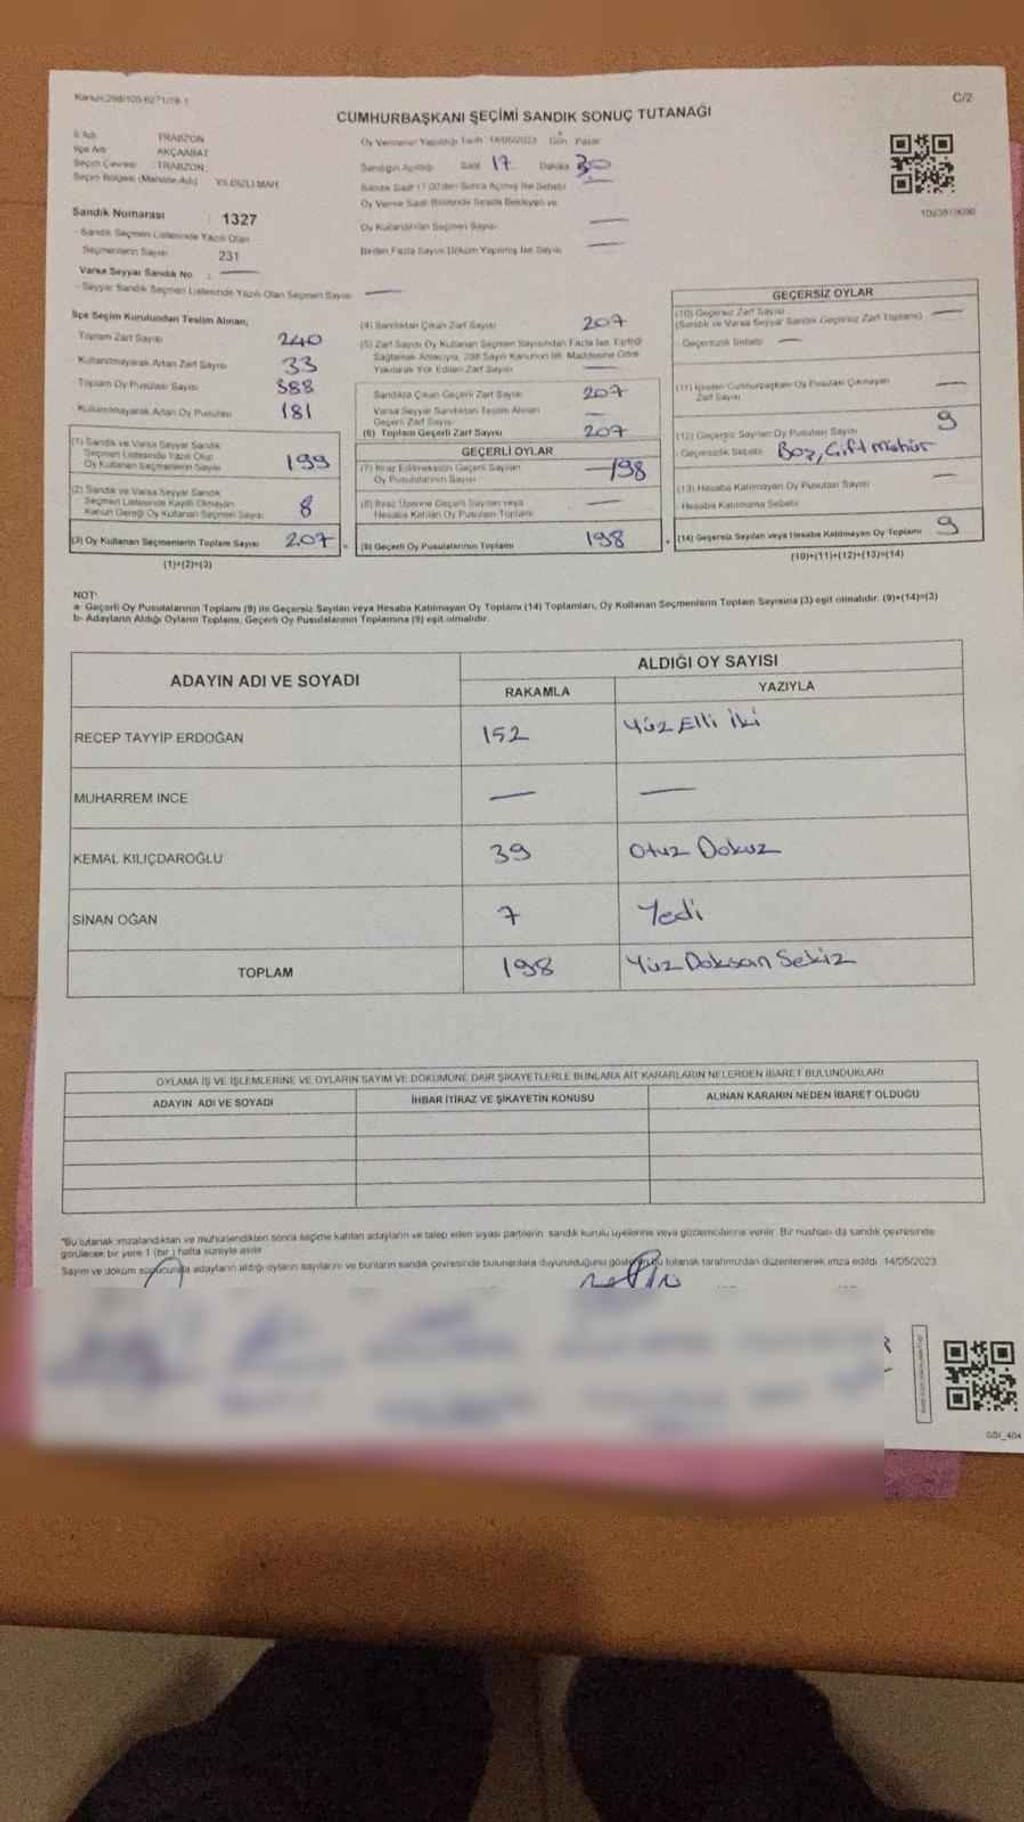 Kanun:298/105-6271/19-1
C/2
CUMHURBAŞKANI SEÇİMİ SANDIK SONUÇ TUTANAĞI
İl Adı TRABZON
İlçe Adı AKÇAABAT
Seçim Çevresi TRABZON
Seçim Bölgesi (Mahalle Adı) YILDIZLI MAH
Oy Vermenin Yapıldığı Tarih 14/05/2023 Gün Pazar
Sandığın Açıldığı Saat 17 Dakika 30
Sandık Saat 17.00'den Sonra Açılmış İse Sebebi
Oy Kullanan Seçmen Sayısı
Birden Fazla Sayım Döküm Yapılmış İse Sayısı
Sandık Numarası 1327
- Sandık Seçmen Listesinde Yazılı Olan
Seçmenlerin Sayısı 231
Varsa Seyyar Sandık No : —
- Seyyar Sandık Seçmen Listesinde Yazılı Olan Seçmen Sayısı —
İlçe Seçim Kurulundan Teslim Alınan;
Toplam Zarf Sayısı 240
- Kullanılmayarak Artan Zarf Sayısı 33
Toplam Oy Pusulası Sayısı 388
- Kullanılmayarak Artan Oy Pusulası 181
(1) Sandık ve Varsa Seyyar Sandık
Seçmen Listesinde Yazılı Olup
Oy Kullanan Seçmenlerin Sayısı 199
(2) Sandık ve Varsa Seyyar Sandık
Seçmen Listesinde Kayıtlı Olmayan
Kanun Gereği Oy Kullanan Seçmen Sayısı 8
(3) Oy Kullanan Seçmenlerin Toplam Sayısı 207
(1)+(2)=(3)
(4) Sandıktan Çıkan Zarf Sayısı 207
(5) Zarf Sayısı Oy Kullanan Seçmen Sayısından Fazla İse, Eşitliği
Sağlamak Amacıyla, 298 Sayılı Kanunun 98. Maddesine Göre
Yakılarak Yok Edilen Zarf Sayısı —
Sandıkta Çıkan Geçerli Zarf Sayısı 207
Varsa Seyyar Sandıktan Teslim Alınan
Geçerli Zarf Sayısı —
(6) Toplam Geçerli Zarf Sayısı 207
GEÇERLİ OYLAR
(7) İtiraz Edilmeksizin Geçerli Sayılan
Oy Pusulalarının Sayısı 198
(8) İtiraz Üzerine Geçerli Sayılan veya
Hesaba Katılan Oy Pusulası Toplamı —
(9) Geçerli Oy Pusulalarının Toplamı 198
GEÇERSİZ OYLAR
(10) Geçersiz Zarf Sayısı
(Sandık ve Varsa Seyyar Sandık Geçersiz Zarf Toplamı) —
- Geçersizlik Sebebi —
(11) İçinden Cumhurbaşkanı Oy Pusulası Çıkmayan
Zarf Sayısı —
(12) Geçersiz Sayılan Oy Pusulası Sayısı 9
- Geçersizlik Sebebi Boş, Çift Mühür
(13) Hesaba Katılmayan Oy Pusulası Sayısı —
Hesaba Katılmama Sebebi
(14) Geçersiz Sayılan veya Hesaba Katılmayan Oy Toplamı 9
(10)+(11)+(12)+(13)=(14)
NOT:
a- Geçerli Oy Pusulalarının Toplamı (9) ile Geçersiz Sayılan veya Hesaba Katılmayan Oy Toplamı (14) Toplamları, Oy Kullanan Seçmenlerin Toplam Sayısına (3) eşit olmalıdır. (9)+(14)=(3)
b- Adayların Aldığı Oyların Toplamı, Geçerli Oy Pusulalarının Toplamına (9) eşit olmalıdır.
ADAYIN ADI VE SOYADI
ALDIĞI OY SAYISI
RAKAMLA YAZIYLA
RECEP TAYYİP ERDOĞAN 152 Yüz Elli İki
MUHARREM İNCE — —
KEMAL KILIÇDAROĞLU 39 Otuz Dokuz
SİNAN OĞAN 7 Yedi
TOPLAM 198 Yüz Doksan Sekiz
OYLAMA İŞ VE İŞLEMLERİNE VE OYLARIN SAYIM VE DÖKÜMÜNE DAİR ŞİKAYETLERLE BUNLARA AİT KARARLARIN NELERDEN İBARET BULUNDUKLARI
ADAYIN ADI VE SOYADI İHBAR İTİRAZ VE ŞİKAYETİN KONUSU ALINAN KARARIN NEDEN İBARET OLDUĞU
"Bu tutanak imzalandıktan ve mühürlendikten sonra seçime katılan adayların ve talep eden siyasi partilerin sandık kurulu üyelerine veya gözlemcilerine verilir. Bir nüshası da sandık çevresinde
görülecek bir yere 1 (bir) hafta süreyle asılır.
Sayım ve döküm sonucunda adayların aldığı oyların sayılarını ve bunların sandık çevresinde bulunanlara duyurulduğunu gösteren bu tutanak tarafımızdan düzenlenerek imza edildi. 14/05/2023